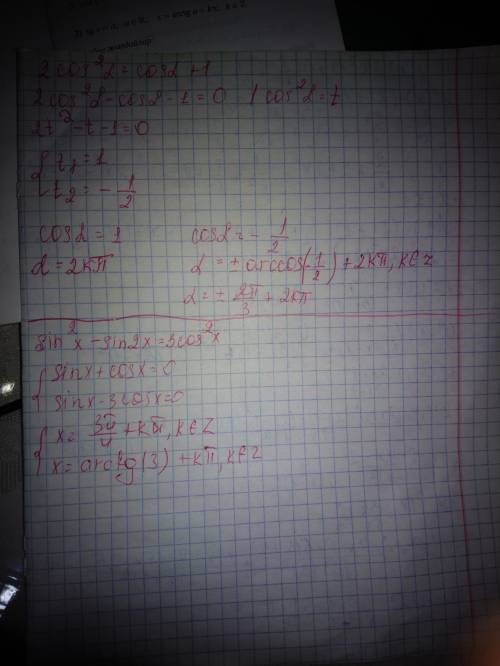 2cos²α = cosα + 1
2cos²α - cosα - 1 = 0 | cos²α = t
2t² - t - 1 = 0
{ t₁ = 1
t₂ = - 1/2
cosα = 1 cosα = - 1/2
α = 2kπ α = ± arccos(-1/2) + 2kπ, k∈Z
α = ± 2π/3 + 2kπ
sin²x - sin2x = 3cos²x
{ sinx + cosx = 0
sinx - 3cosx = 0
{ x = 3π/4 + kπ, k∈Z
x = arctg(3) + kπ, k∈Z